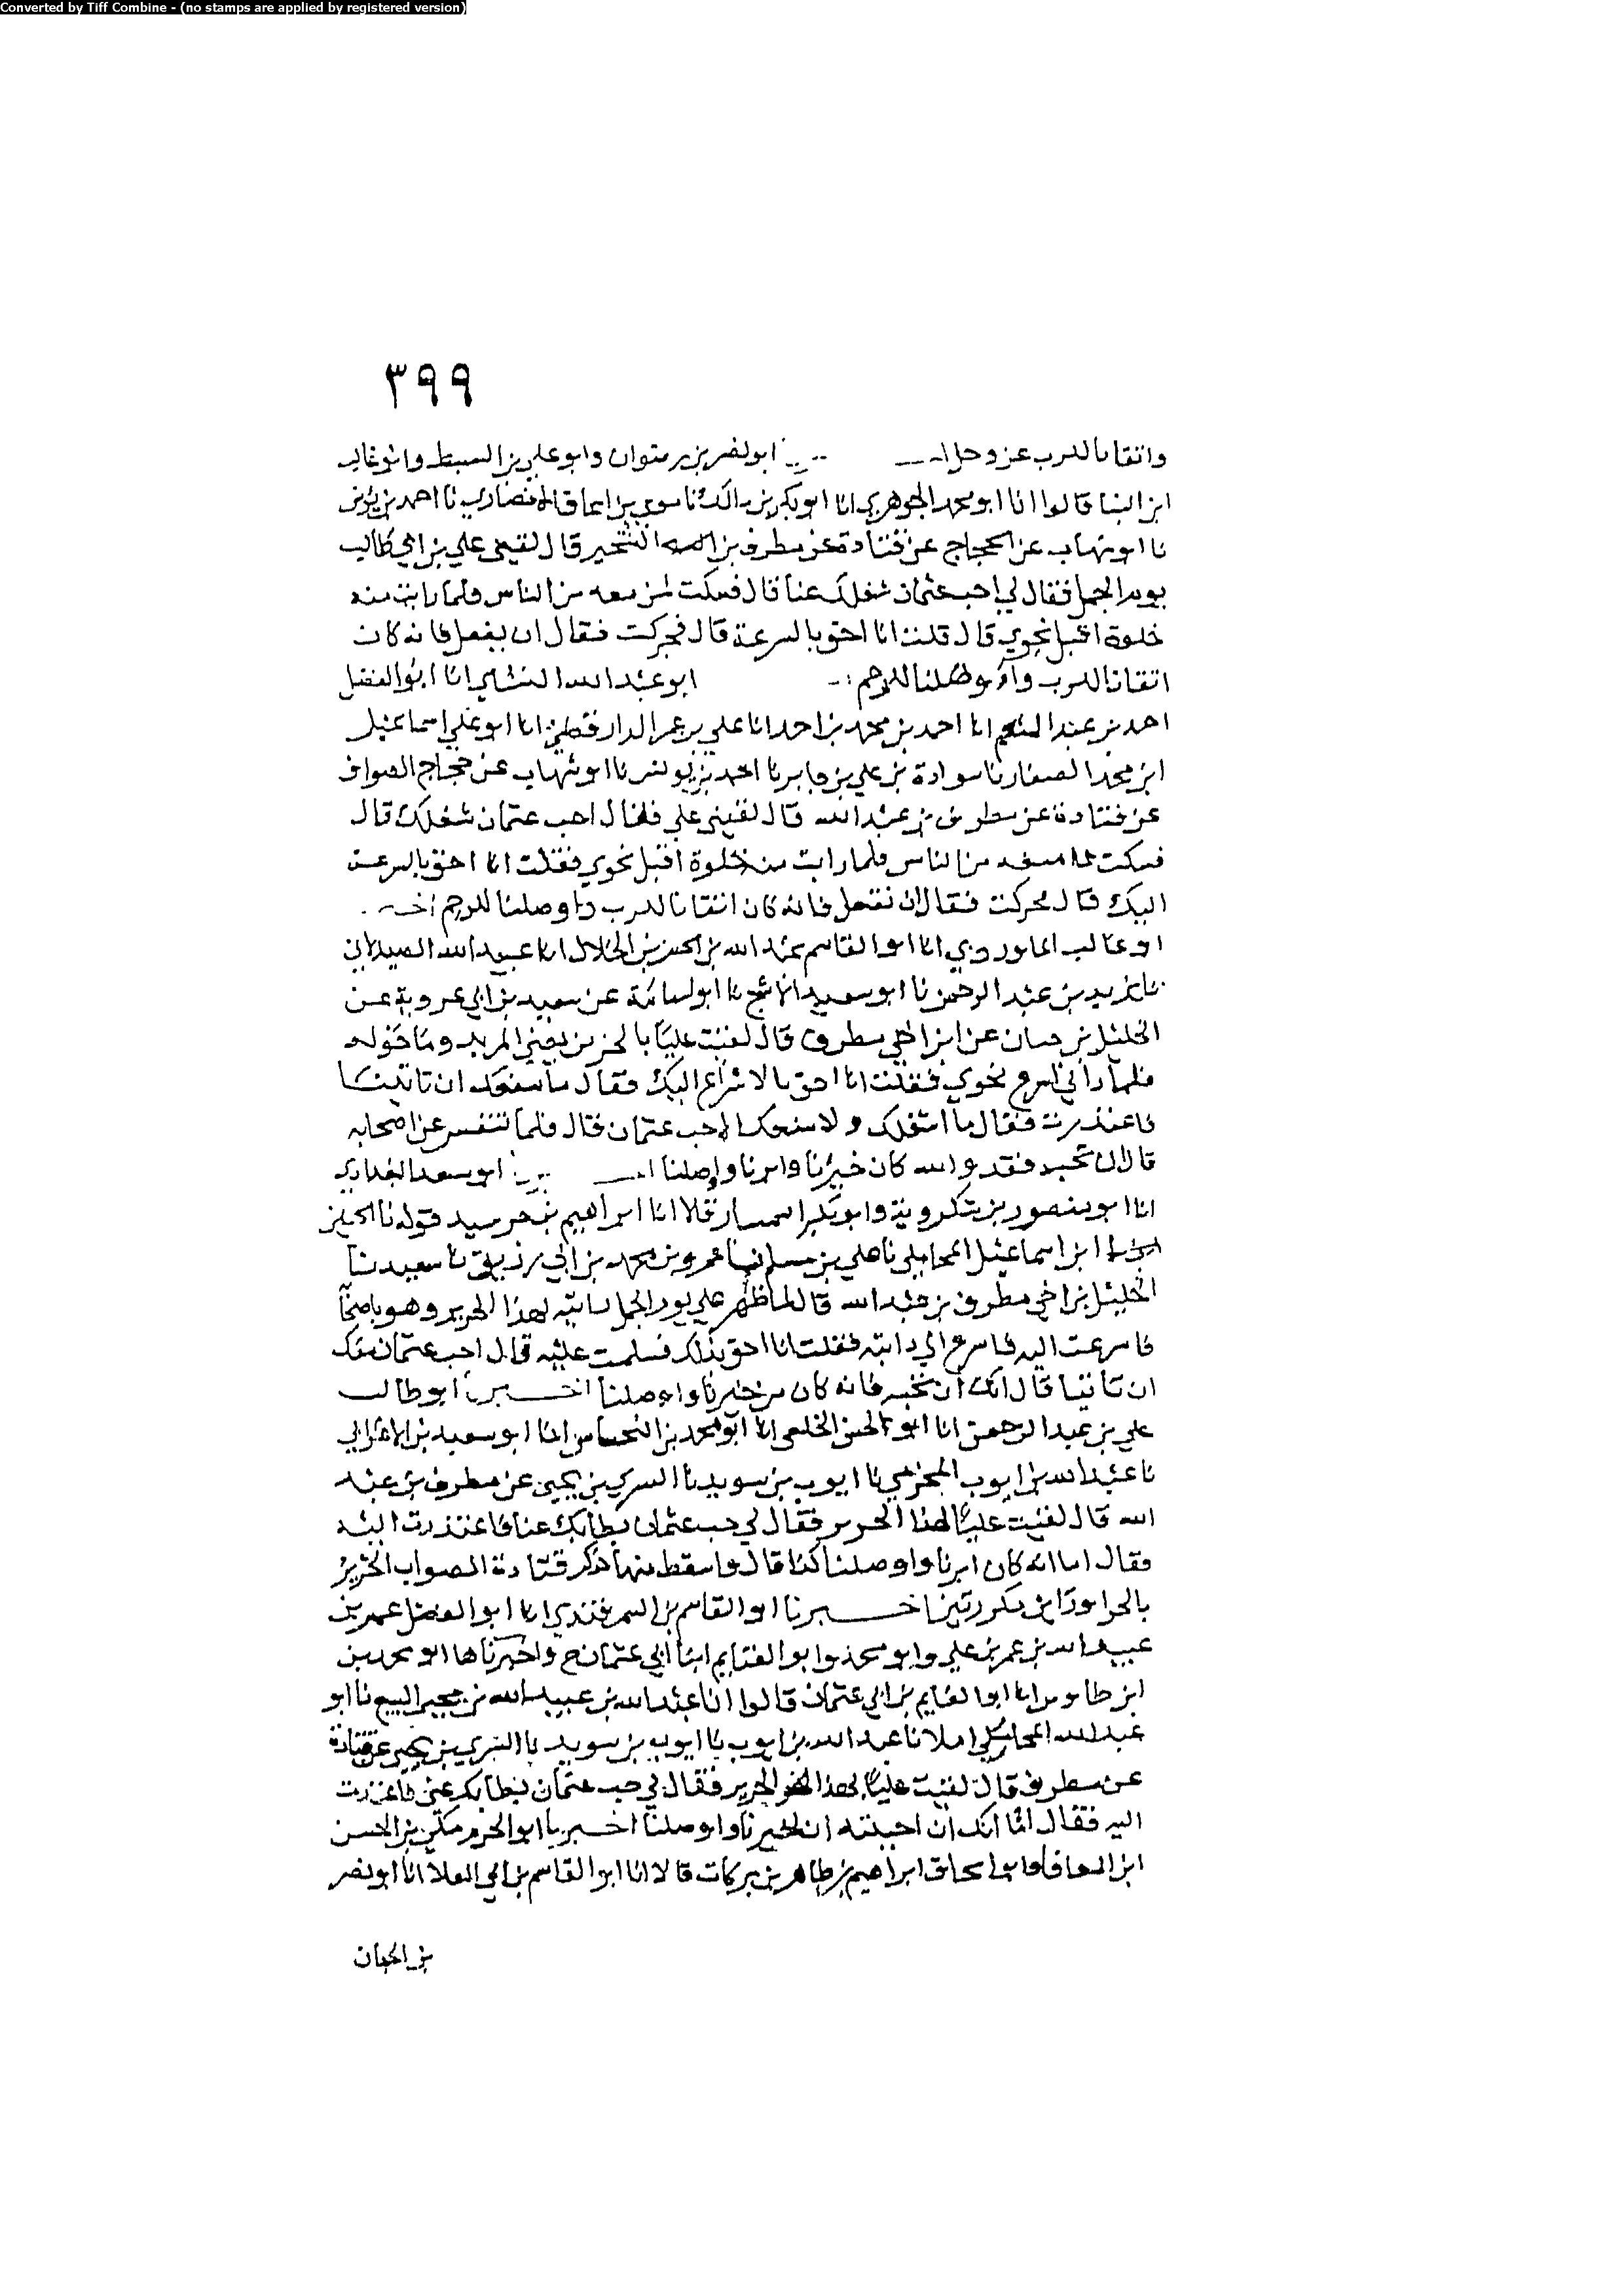 Converted by Tiff Combine - (no stamps are applied by registered version)
٣٩٩
واتقانا للرب عز وجل ابو نصر بن رضوان وابو علي بن السبط وابو غالب
ابن البنا قالوا انا ابو محمد الجوهري انا ابو بكر بن مالك نا موسى بن اسحاق الانصاري نا احمد بن يونس
نا ابو شهاب عن الحجاج عن قتادة عن مطرف بن الشخير قال لقيني علي بن ابي طالب
يوم الجمل فقال لي احب عثمان شغلك عنا قال فسكت لمن معه من الناس فلما رايت منه
خلوة اقبل نحوي قال قلت انا احق بالسرعة قال فحركت فقال ان يفعل فانه كان
اتقانا للرب واوصلنا للرحم ابو عبد الله انا ابو الفضل
احمد بن عبد المنعم انا احمد بن محمد بن احمد انا علي بن عمر الدارقطني انا ابو علي اسماعيل
ابن محمد الصفار نا سوادة بن علي بن جابر نا احمد بن يونس نا ابو شهاب عن حجاج الصواف
عن قتادة عن مطرف بن عبد الله قال لقيني علي فقال احب عثمان شغلك قال
فسكت لما معه من الناس فلما رايت منه خلوة اقبل نحوي فقلت انا احق بالسرعة
اليك قال فحركت فقال ان نفعل فانه كان اتقانا للرب واوصلنا للرحم
ابو غالب الماوردي انا ابو القاسم عبد الله بن الحسن بن الخلال انا عبيد الله الصيدلاني
نا يزيد بن عبد الرحمن نا ابو سعيد الاشج نا ابو اسامة عن سعيد بن ابي عروبة عن
الخليل بن حسان عن ابن اخي مطرف قال لقيت عليا بالحزيز يعني المربد وما حوله
فلما راني اسرع نحوي فقلت انا احق بالاسراع اليك فقال ما منعك ان تاتينا
فاعتذرت فقال ما شغلك ولا منعك الا حب عثمان فقال فلما تنفس عن اصحابه
قال ان تحبه فقد والله كان خيرنا وابرنا واوصلنا ابو سعد البغدادي
انا ابو منصور بن شكرويه وابو بكر السمسار قالا انا ابراهيم بن خرشيد قوله نا الحسين
ابن اسماعيل المحاملي نا علي بن مسلم نا عمرو بن محمد بن ابي رزيق نا سعيد نا
الخليل بن اخي مطرف بن عبد الله قال لما ظهر علي يوم الجمل لهذا الحرير وهو
فاسرعت اليه فاسرع الي دابته فقلت انا احق بذلك فسلمت عليه قال احب عثمان منعك
ان تاتينا قال انك ان تحبه فانه كان من خيرنا واوصلنا اخبرنا ابو طالب
علي بن عبد الرحمن انا ابو الحسن الخلعي انا ابو محمد بن النحاس انا ابو سعيد بن الاعرابي
نا عبد الله بن ايوب المخزمي نا ايوب بن سويد نا السري بن يحيى عن مطرف بن عبد
الله قال لقيت عليا لهذا الحرير فقال لي حب عثمان بطا بك عنا فاعتذرت اليه
فقال اما انه كان ابرنا واوصلنا كذا قال واسقط منها ذكر قتادة الصواب الحزيز
بالحا وزاين مكررتين اخبرنا ابو القاسم بن السمرقندي انا ابو الفضل عمر بن
عبيد الله بن عمر بن علي وابو محمد وابو الغنايم ابنا ابي عثمان ح واخبرناها ابو محمد بن
ابن طاوس انا ابو الغنايم بن ابي عثمان قالوا انا عبد الله بن عبيد الله بن يحيى البيع نا ابو
عبد الله المحاملي املا نا عبد الله بن ايوب نا ايوب بن سويد نا السري بن يحيى عن قتادة
عن مطرف قال لقيت عليا لهذا الحرير فقال لي حب عثمان بطا بك عني فاعتذرت
اليه فقال اما انك ان احببته ان لخيرنا واوصلنا اخبرنا ابو الحرم مكي بن الحسن
ابن المعافا وابو اسحاق ابراهيم بن طاهر بن بركات قالا انا ابو القاسم بن ابي العلا انا ابو نصر
بن الجبان